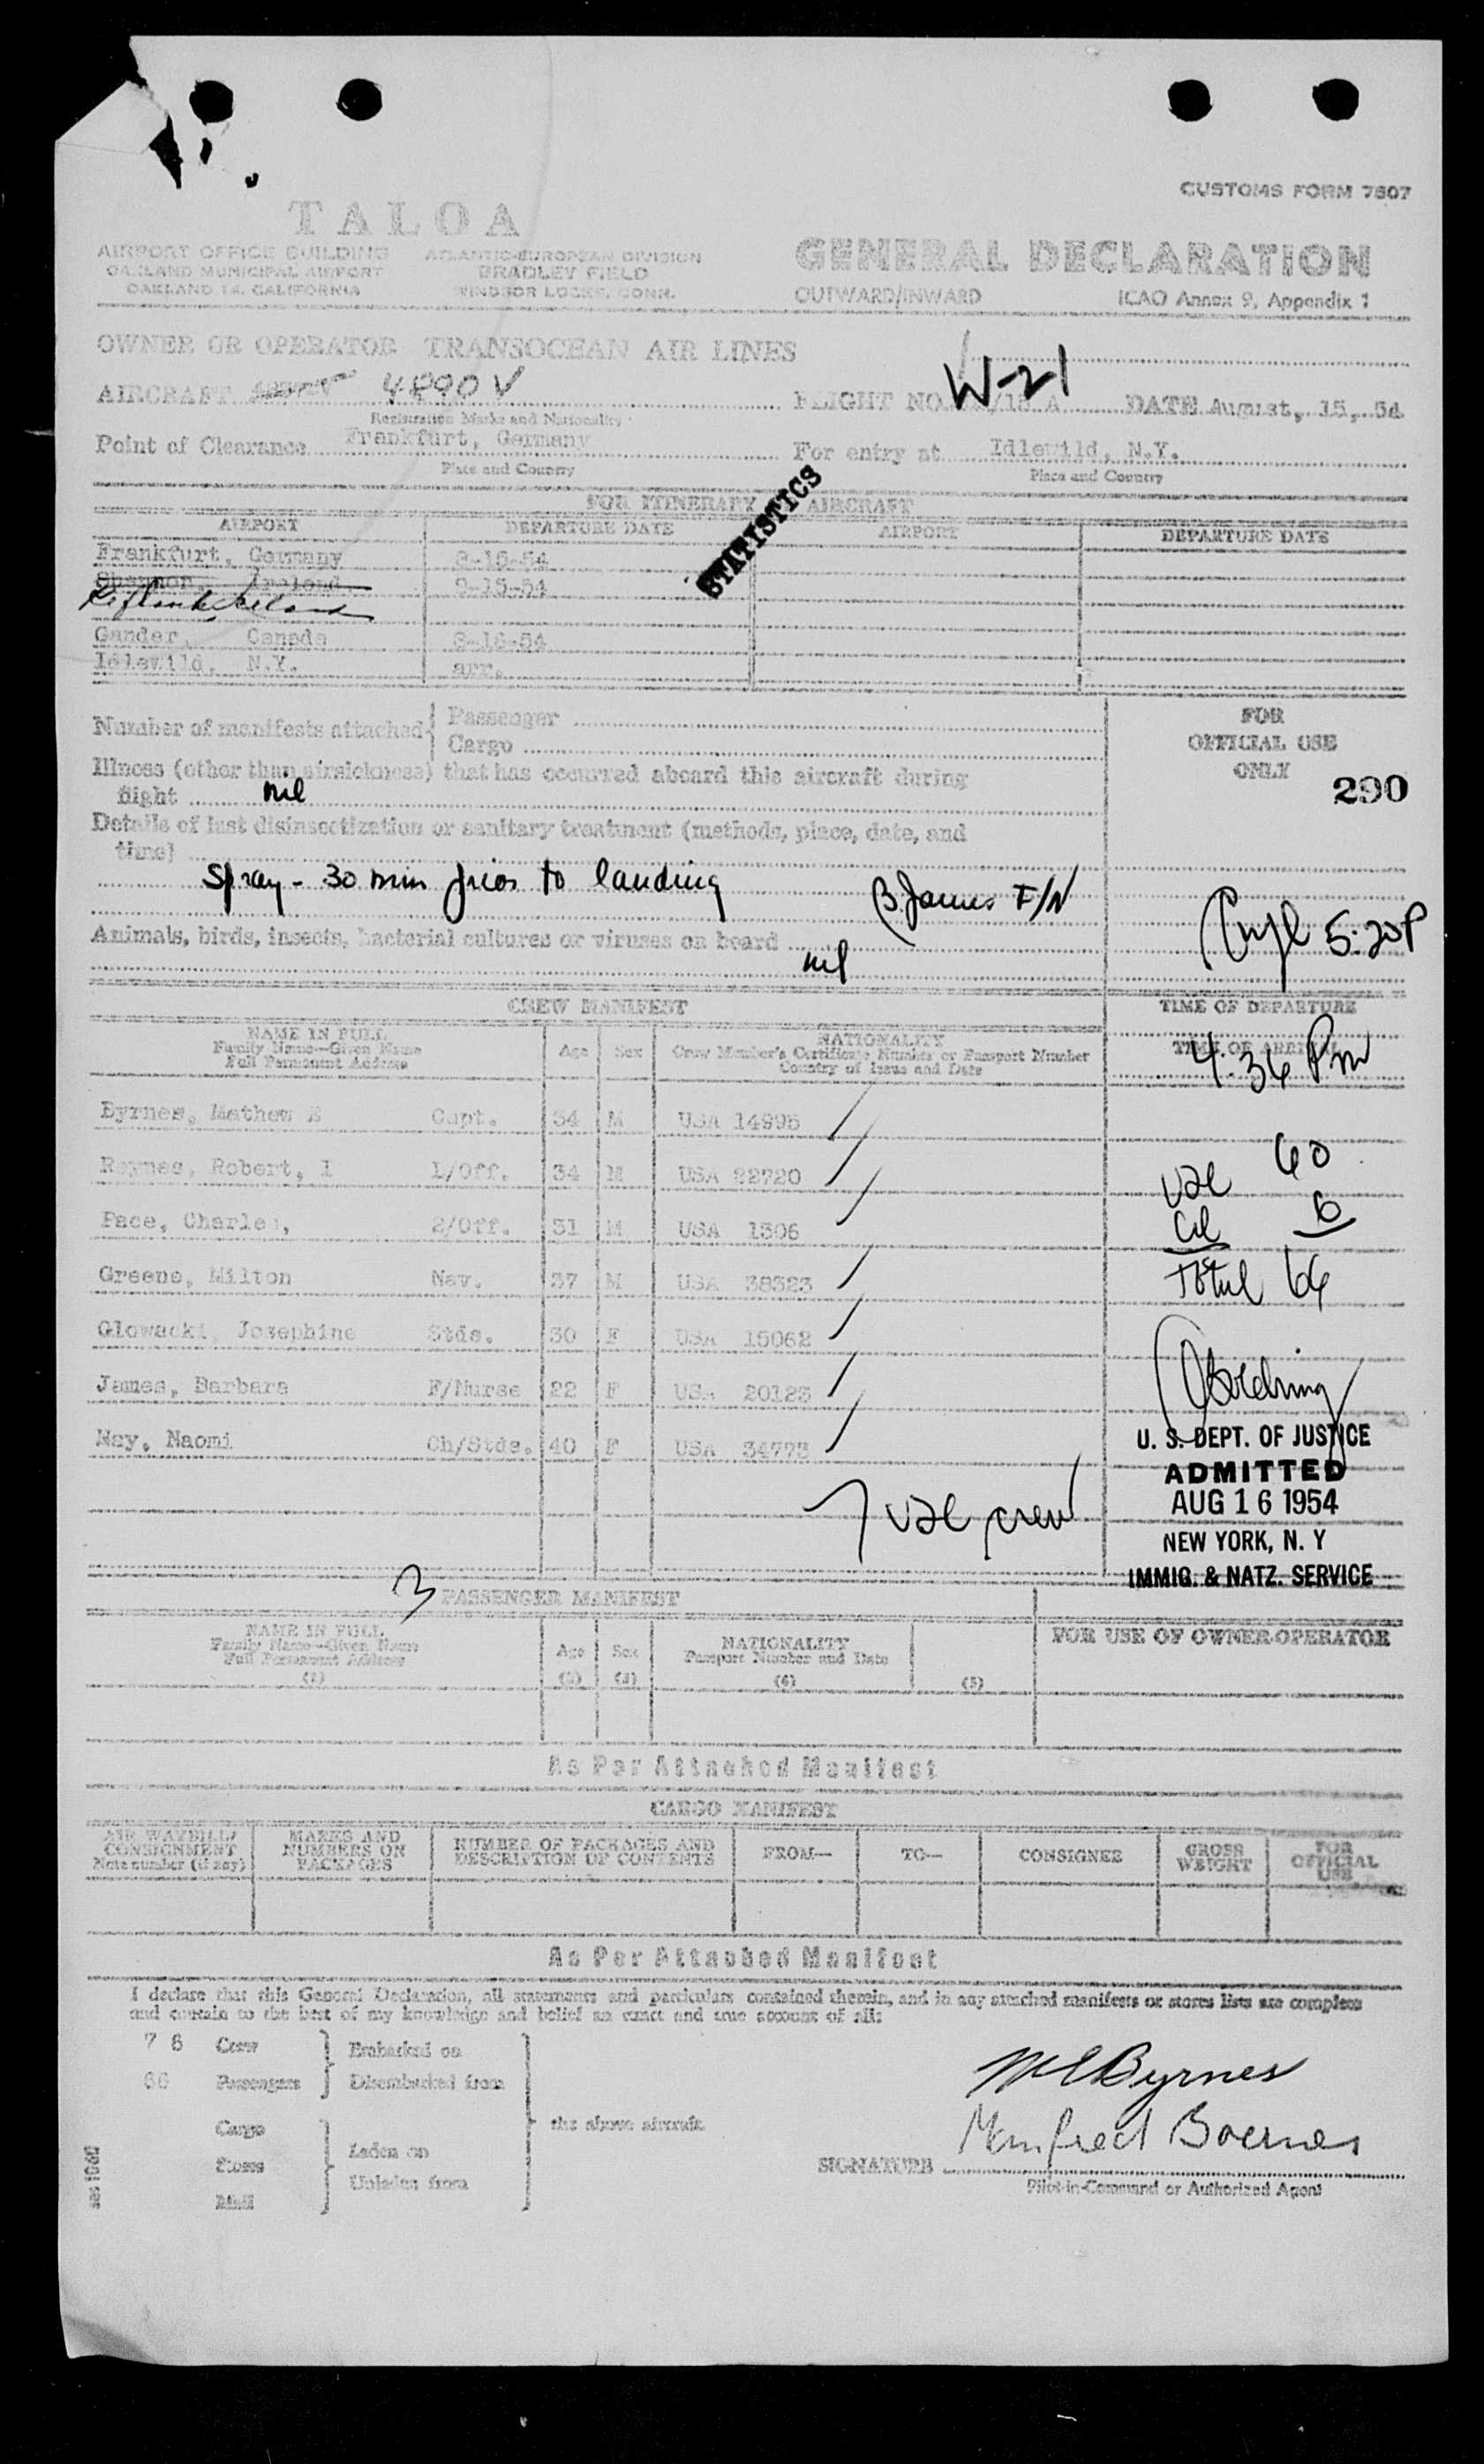 CUSTOMS FORM 7507
TALOA
AIRPORT OFFICE BUILDING
OAKLAND MUNICIPAL AIRPORT
OAKLAND 14, CALIFORNIA
ATLANTIC-EUROPEAN DIVISION
BRADLEY FIELD
WINDSOR LOCKS, CONN.
GENERAL DECLARATION
OUTWARD/INWARD ICAO Annex 9, Appendix 1
OWNER OR OPERATOR TRANSOCEAN AIR LINES
AIRCRAFT 4890V FLIGHT NO. W-21 DATE August, 15, 54
Registration Marks and Nationality
Point of Clearance Frankfurt, Germany For entry at Idlewild, N.Y.
Place and Country Place and Country
STATISTICS
FOR ITINERARY AIRCRAFT
AIRPORT DEPARTURE DATE AIRPORT DEPARTURE DATE
Frankfurt, Germany 8-15-54
Shannon, Ireland 8-15-54
Gander, Canada 8-16-54
Idlewild, N.Y. arr.
Number of manifests attached Passenger
Cargo
FOR
OFFICIAL USE
ONLY
290
Illness (other than airsickness) that has occurred aboard this aircraft during
flight nil
Details of last disinsectization or sanitary treatment (methods, place, date, and
time)
Spray - 30 min prior to landing B. James F/N
Animals, birds, insects, bacterial cultures or viruses on board
nil
5:20P
CREW MANIFEST
TIME OF DEPARTURE
TIME OF ARRIVAL
4:36 Pm
NAME IN FULL
Family Name—Given Name
Full Permanent Address
Age Sex
NATIONALITY
Crew Member's Certificate Number or Passport Number
Country of Issue and Date
Byrnes, Mathew E Capt. 34 M USA 14995
Reynes, Robert, I 1/Off. 34 M USA 22720
Pace, Charles, 2/Off. 31 M USA 1306
Greene, Milton Nav. 37 M USA 38323
Glowacki, Josephine Stds. 30 F USA 15062
James, Barbara F/Nurse 22 F USA 20123
May, Naomi Ch/Stds. 40 F USA 34773
USC 60
6
Total 66
7 USC crew
U. S. DEPT. OF JUSTICE
ADMITTED
AUG 16 1954
NEW YORK, N. Y
IMMIG. & NATZ. SERVICE
3
PASSENGER MANIFEST
NAME IN FULL
Family Name—Given Name
Full Permanent Address
(1)
Age Sex
NATIONALITY
Passport Number and Date
(4) (5)
FOR USE OF OWNER-OPERATOR
As Per Attached Manifest
CARGO MANIFEST
AIR WAYBILL/
CONSIGNMENT
Note number (if any)
MARKS AND
NUMBERS ON
PACKAGES
NUMBER OF PACKAGES AND
DESCRIPTION OF CONTENTS
FROM— TO— CONSIGNEE
GROSS
WEIGHT
FOR
OFFICIAL
USE
As Per Attached Manifest
I declare that this General Declaration, all statements and particulars contained therein, and in any attached manifests or stores lists are complete
and contain to the best of my knowledge and belief an exact and true account of all:
7 8 Crew Embarked on
66 Passengers Disembarked from
the above aircraft
Cargo
Stores Laden on
Mail Unladen from
M E Byrnes
Manfred Boerner
SIGNATURE
Pilot-in-Command or Authorized Agent